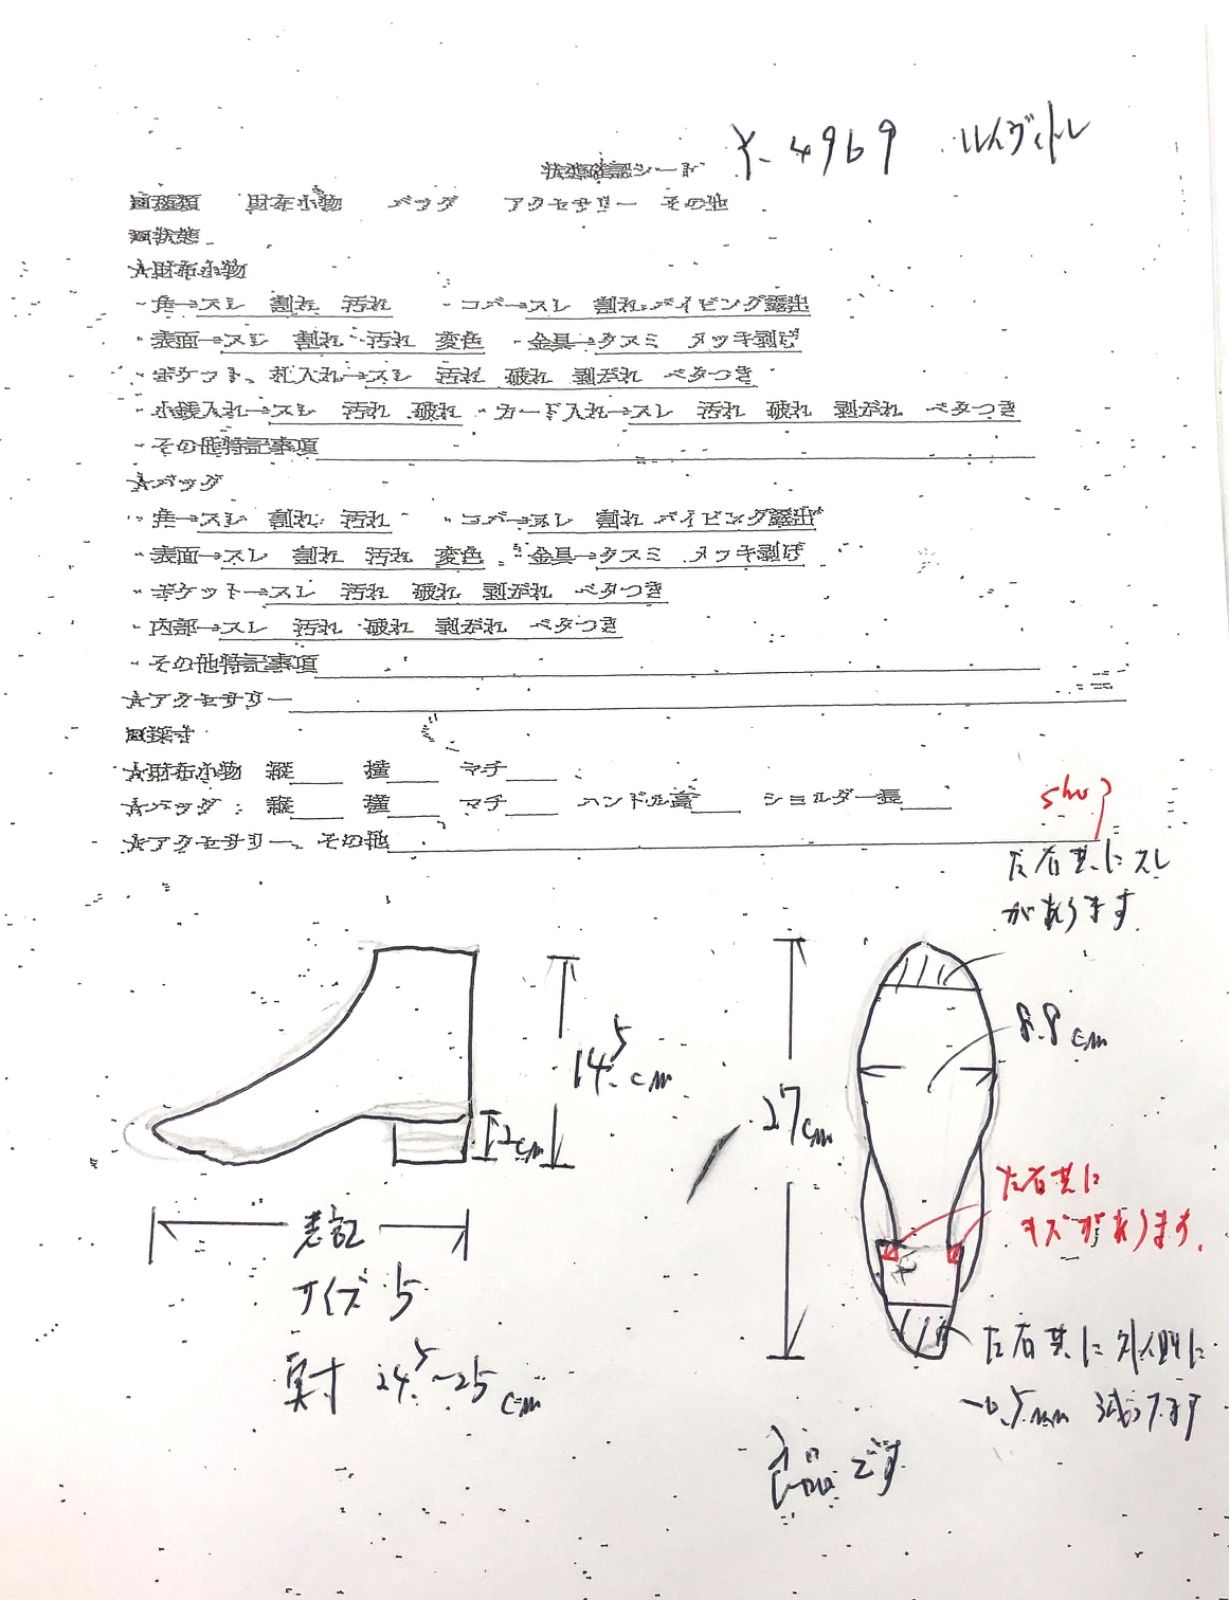 Y-4969 ルイヴィトン
状態確認シート
■種類 財布小物 バッグ アクセサリー その他
■状態
★財布小物
・角→スレ 割れ 汚れ ・コバ→スレ 割れ パイピング露出
・表面→スレ 割れ 汚れ 変色 ・金具→クスミ メッキ剥げ
・ポケット、札入れ→スレ 汚れ 破れ 剥がれ ベタつき
・小銭入れ→スレ 汚れ 破れ ・カード入れ→スレ 汚れ 破れ 剥がれ ベタつき
・その他特記事項
★バッグ
・角→スレ 割れ 汚れ ・コバ→スレ 割れ パイピング露出
・表面→スレ 割れ 汚れ 変色 ・金具→クスミ メッキ剥げ
・ポケット→スレ 汚れ 破れ 剥がれ ベタつき
・内部→スレ 汚れ 破れ 剥がれ ベタつき
・その他特記事項
★アクセサリー
■採寸
★財布小物 縦 横 マチ
★バッグ 縦 横 マチ ハンドル高 ショルダー長
★アクセサリー、その他
左右共にスレ
があります
14.5cm
2cm
27cm
8.8cm
左右共に
キズがあります.
表記
サイズ 5
実寸 24.5~25cm
左右共に外側に
減ってます
良品です